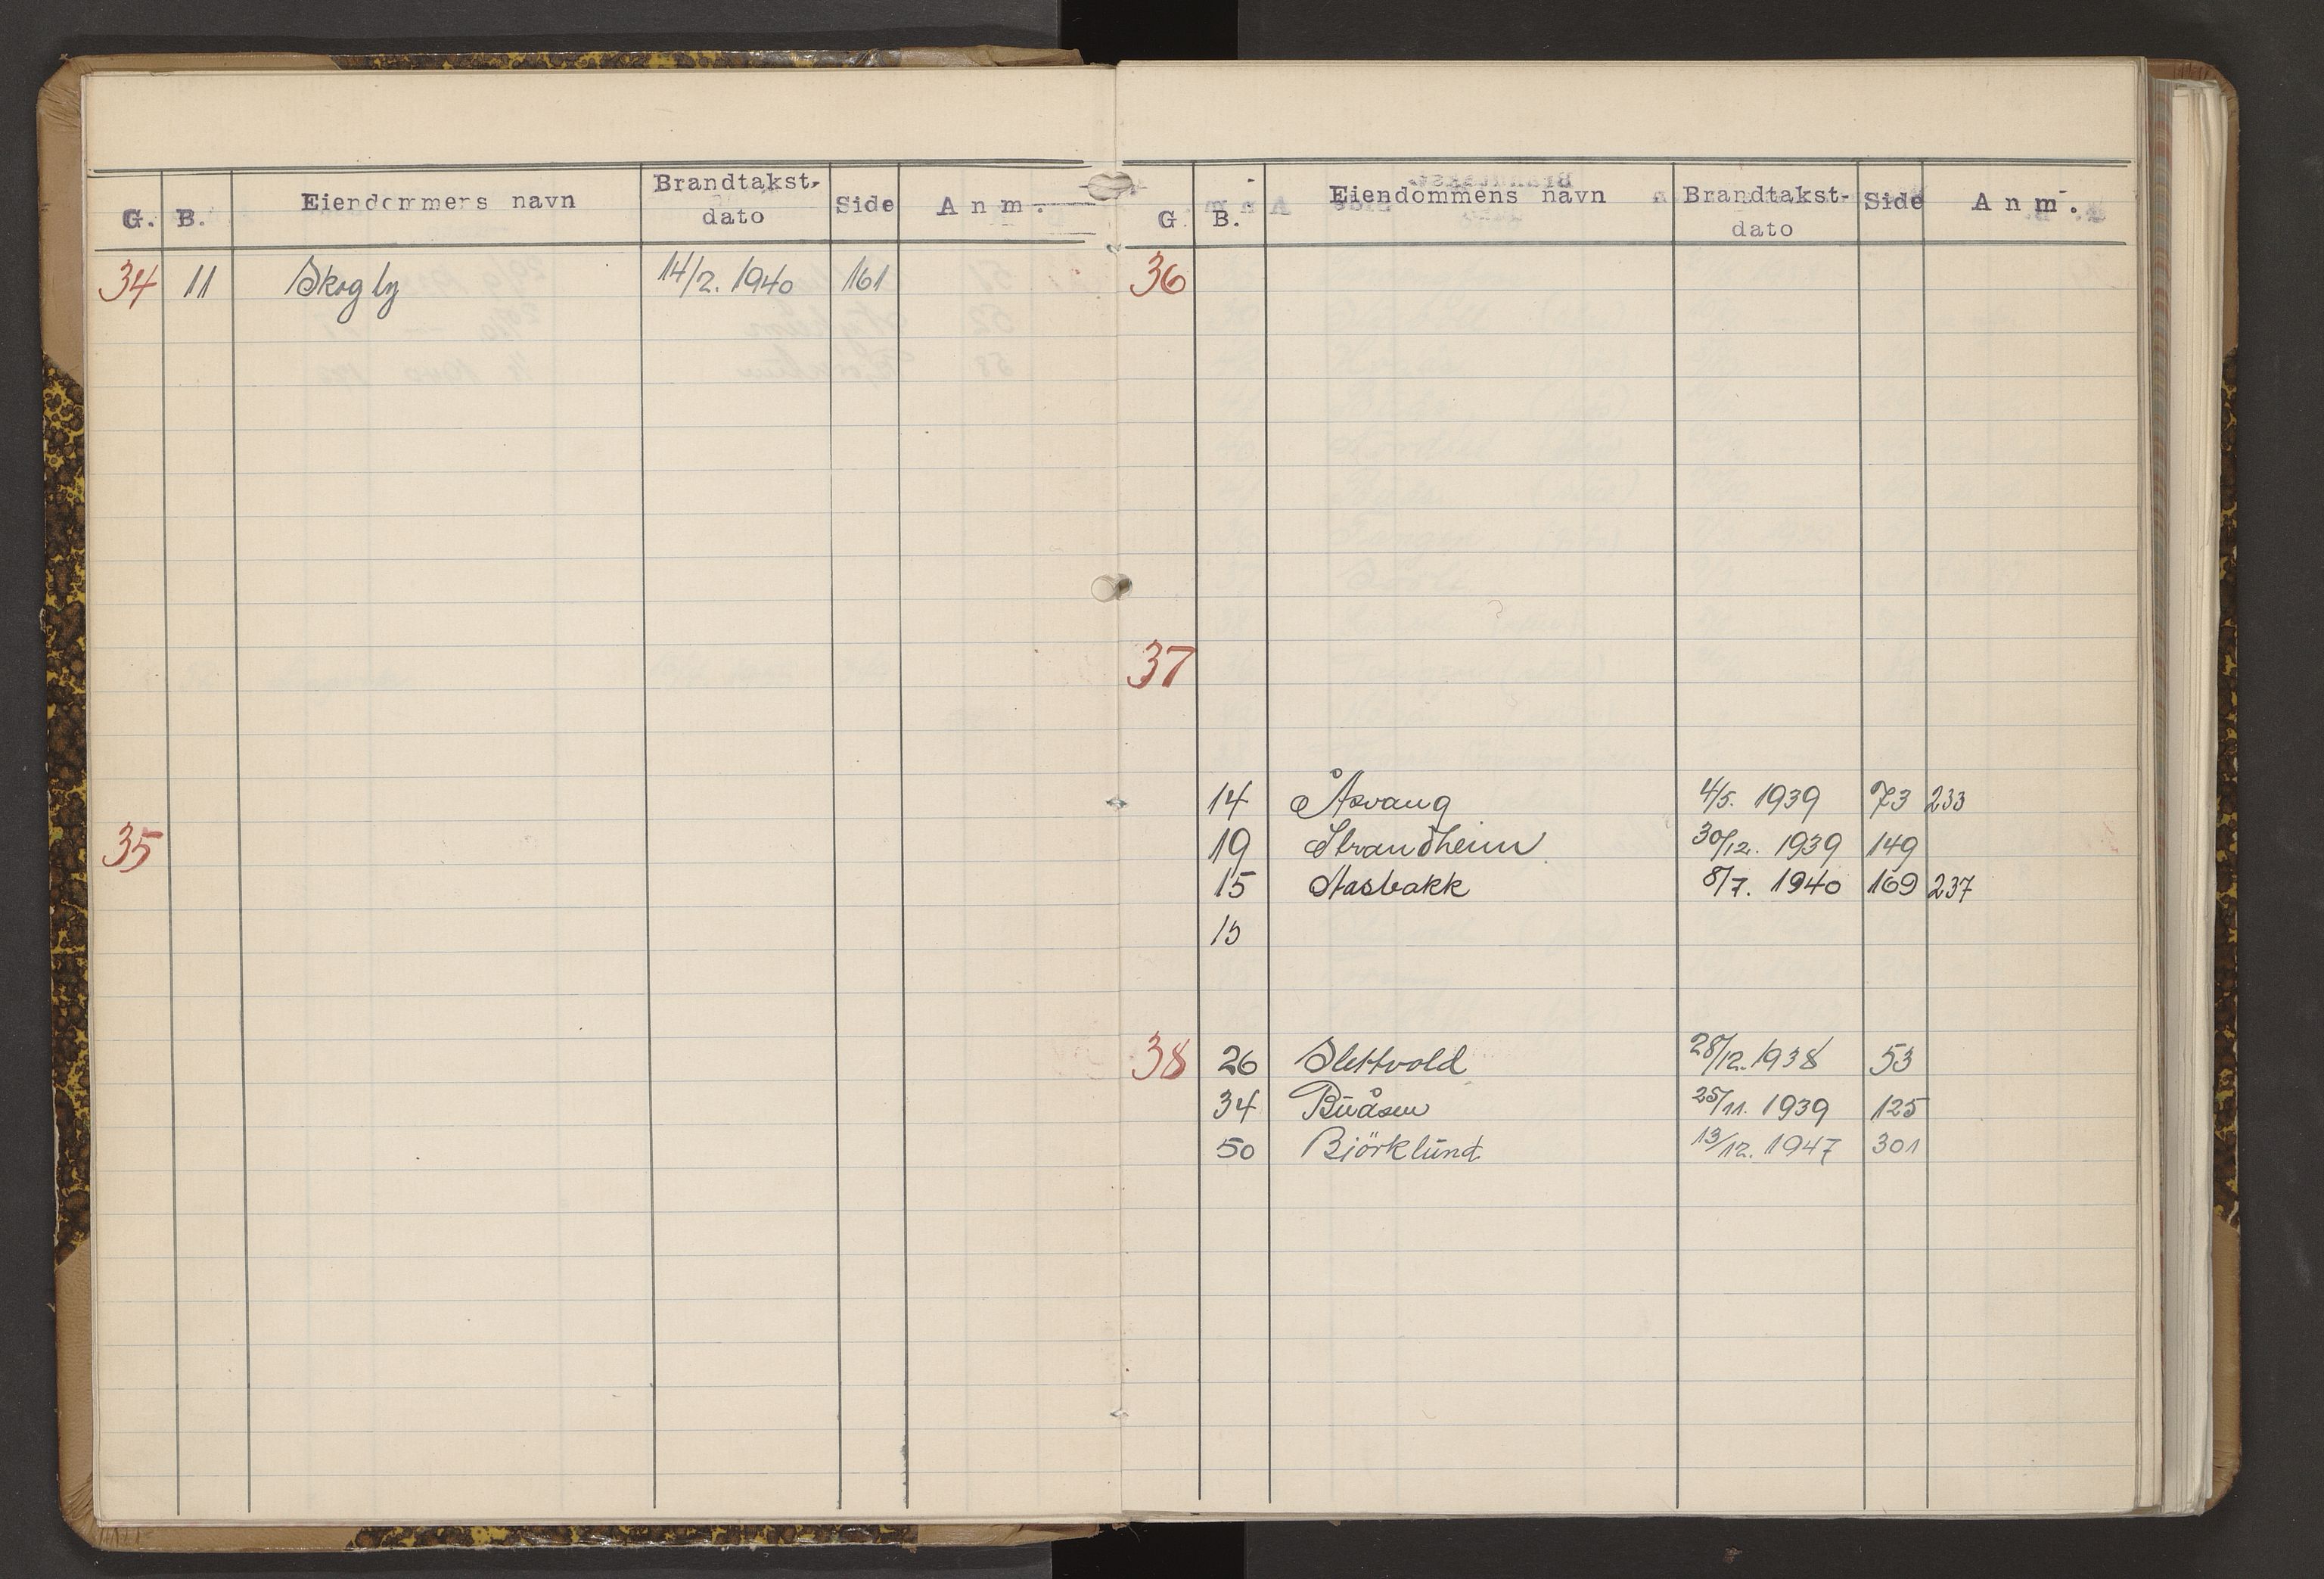 G. B. Eiendommens navn Brandtakst- dato Side Anm.
34 11 Skogly 14/2. 1940 161
35
G B. Eiendommens navn Brandtakst- dato Side Anm.
36
37
14 Åsvang 4/5. 1939 73 233
19 Strandheim 30/12. 1939 149
15 Aasbakk 8/7. 1940 169 237
15
38 26 Slettvold 28/12. 1938 53
34 Buåsen 25/11. 1939 125
50 Björklund 13/12. 1947 301